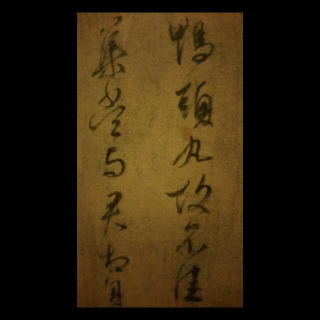 鴨頭丸故不佳
集當与君相見